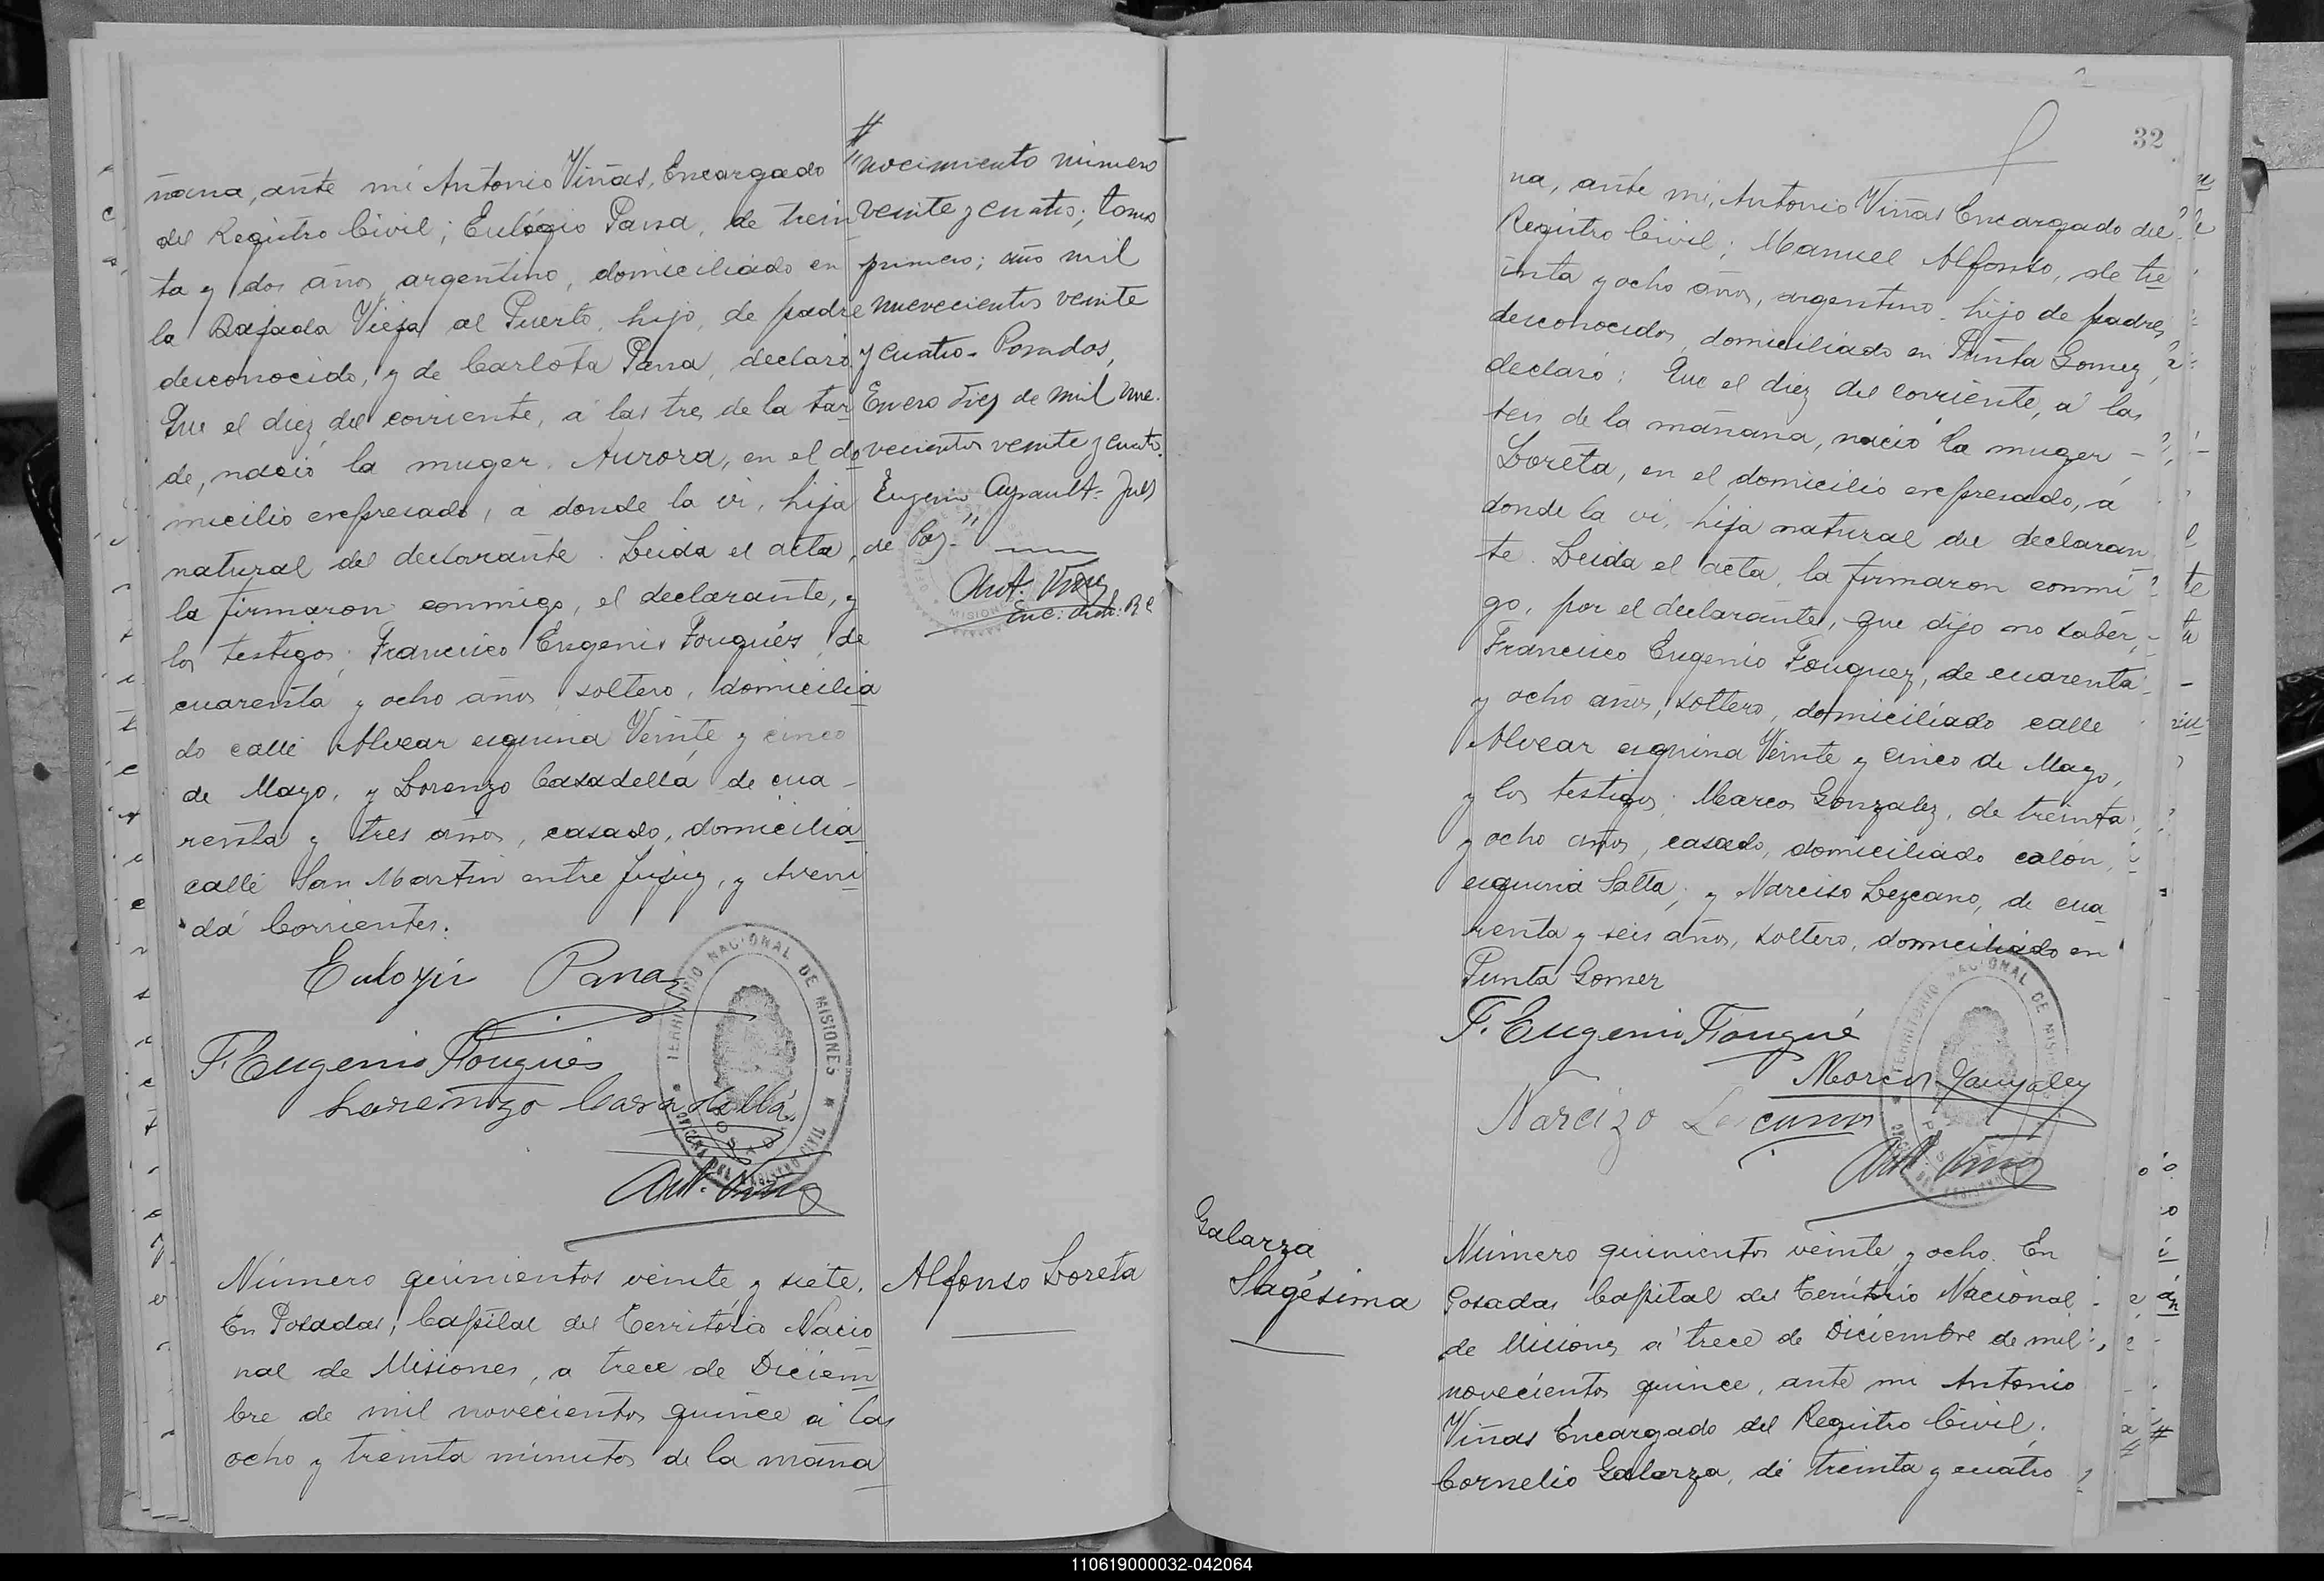 ñana, ante mi Antonio Viñas, Encargado
del Registro Civil; Eulógio Pana, de trein
ta y dos años, argentino, domiciliado en
la Bajada Vieja al Puerto, hijo, de padre
desconocido, y de Carlota Pana, declaró:
Que el diez del corriente, á las tres de la tar
de, nació la muger, Aurora, en el do
micilio expresado, á donde la vi, hija
natural del declarante. Leida el acta,
la firmaron conmigo, el declarante, y
los testigos, Francisco Eugenio Fouqués, de
cuarenta y ocho años, soltero, domicilia
do calle Alvear esquina Veinte y cinco
de Mayo, y Lorenzo Casadellá de cua-
renta y tres años, casado, domicilia
calle San Martin entre Jujuy, y Aveni
da Corrientes.
Eulogio Pana
F. Eugenio Fouqués
Lorenzo Casadellá
Ant. Viñas
TERRITORIO NACIONAL DE MISIONES
OFICINA DEL REGISTRO CIVIL
POSADAS
Número quinientos veinte y siete.
En Posadas, Capital del Territorio Nacio
nal de Misiones, a trece de Diciem
bre de mil novecientos quince a las
ocho y treinta minutos de la maña
#
"nocimiento número
veinte y cuatro; tomo
primero; año mil
nuevecientos veinte
y cuatro- Posadas,
Enero diez de mil nue-
vecientos veinte y cuatro.
Eugenio Ayrault- Juez
de Paz-"
Ant. Viñas
Enc.
MISIONES
Alfonso Loreta
32
na, ante mi, Antonio Viñas Encargado del
Registro Civil; Manuel Alfonso, de tre
inta y ocho años, argentino, hijo de padres
desconocidos, domiciliado en Punta Gomez,
declaró: Que el diez del corriente, a las
seis de la mañana, nació la muger -
Loreta, en el domicilio expresado, á
donde la vi, hija natural del declaran
te. Leida el acta, la firmaron conmi
go, por el declarante, que dijo no saber,
Francisco Eugenio Fouquez, de cuarenta
y ocho años, soltero, domiciliado calle
Alvear esquina Veinte y cinco de Mayo,
y los testigos, Marcos Gonzalez, de treinta
y ocho años, casado, domiciliado colón,
esquina Salta, y Narciso Lezcano, de cua
renta y seis años, soltero, domiciliado en
Punta Gomez
F. Eugenio Fouqué
Marcos Gonzalez
Narcizo Lescano
Ant. Viñas
TERRITORIO NACIONAL DE MISIONES
Galarza
Sagésima
Número quinientos veinte y ocho. En
Posadas Capital del Territorio Nacional
de Misiones a trece de Diciembre de mil
novecientos quince, ante mi Antonio
Viñas Encargado del Registro Civil,
Cornelio Galarza, de treinta y cuatro
110619000032-042064